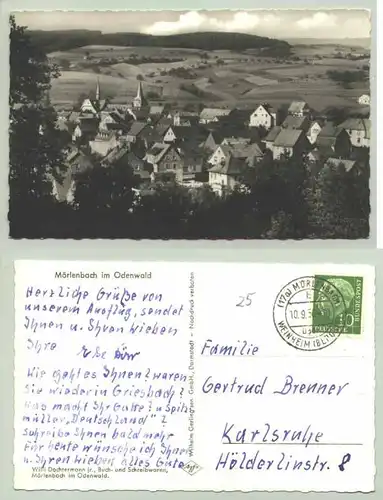 Mörlenbach im Odenwald
Herzliche Grüße von
unserem Ausflug, sendet
Ihnen u. Ihren lieben
Ihre
Wie geht es Ihnen? waren
Sie wieder in Griesbach?
Was macht Ihr Gatte? u. Spitz
müller „Deutschland"?
schreibe Ihnen bald mehr
für heute wünsche ich Ihnen
u. Ihren lieben alles Gute
Willi Dachtermann jr., Buch- und Schreibwaren,
Mörlenbach im Odenwald.
Wilhelm Gerling GmbH., Darmstadt - Nachdruck verboten
25
(17a) MÖRLENBACH
10.9.5
WEINHEIM (BERGSTR)
DEUTSCHE BUNDESPOST
10
Familie
Gertrud Brenner
Karlsruhe
Hölderlinstr. 8